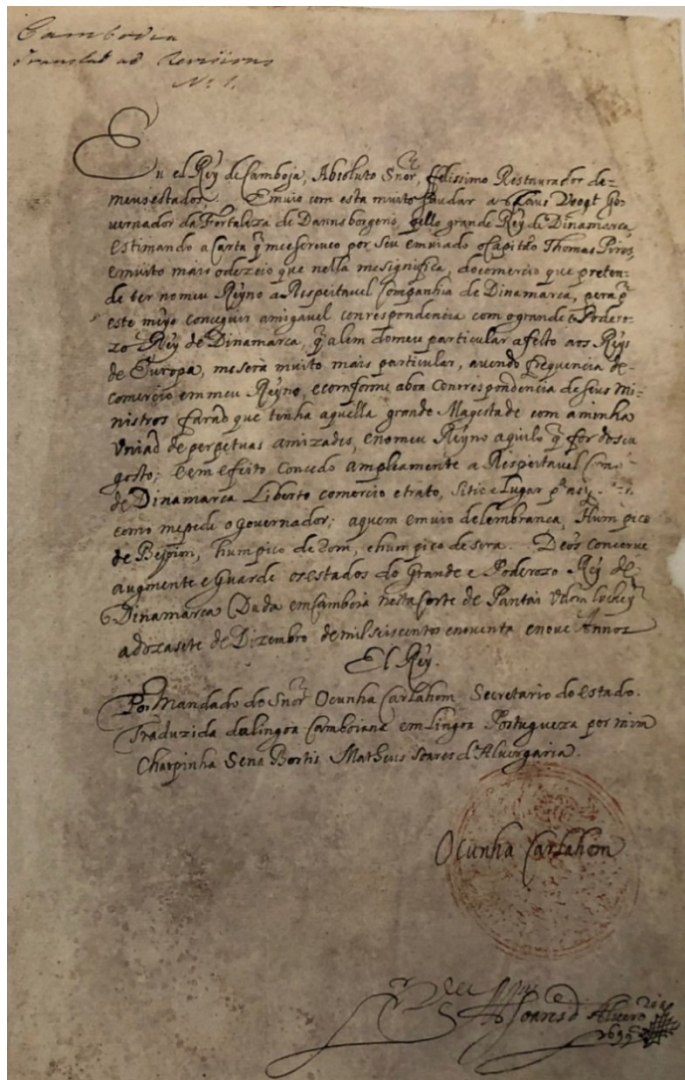 Cambodia
Translat ad Revisions
No 1.
Eu el Rey de Camboja, Absoluto Snor, felissimo Restaurador de-
meus estados, Emvio com esta muito saudar a Claus Voogt Go-
vernador da Fortaleza de Dannsborgenô, pello grande Rey de Dinamarca,
estimando a Carta q̃ me escreveo por seu emviado o Capitão Thomas Pires,
e muito mais o dezeio que nella me significa, do comercio que preten-
de ter no meu Reyno a Respeitavel Companhia de Dinamarca, pera q̃
este meyo conseguir amigavel conrespondencia com o grande e Podero-
zo Rey de Dinamarca, q̃ alem do meu particular afeito aos Reys
de Europa, me será muito mais particular, avendo frequencia de-
comercio em meu Reyno, e comforme a boa Conrrespondencia de seus Mi-
nistros farão que tenha aquella grande Magestade com a minha
Uniaõ de perpetuas amizades, e no meu Reyno aquilo q̃ for do seu
gosto; e em efeito Concedo ampleamente a Respeitavel
de Dinamarca Liberto comercio e trato, Sitio e Lugar pa
como me pede o governador; a quem emvio de lembranca, Hum pico
de Beijoim, hum pico de Rom, e hum pico de sera. Deos concerve
augmente e Guarde os estados do Grande e Poderozo Rey de
Dinamarca Dada em Camboja nesta Corte de Pontai Udom
a dozasete de Dizembro de mil seiscentos e noventa e nove Annos
El Rey.
Por Mandado do Snor Ocunha Carlahom Secretario do estado.
Traduzida da lingoa Camboiana em Lingoa Portugueza por mim
Charpinha Sena Bortis Matheus Soares d'Alvergaria.
Ocunha Carlahom
Soares d'Alverg